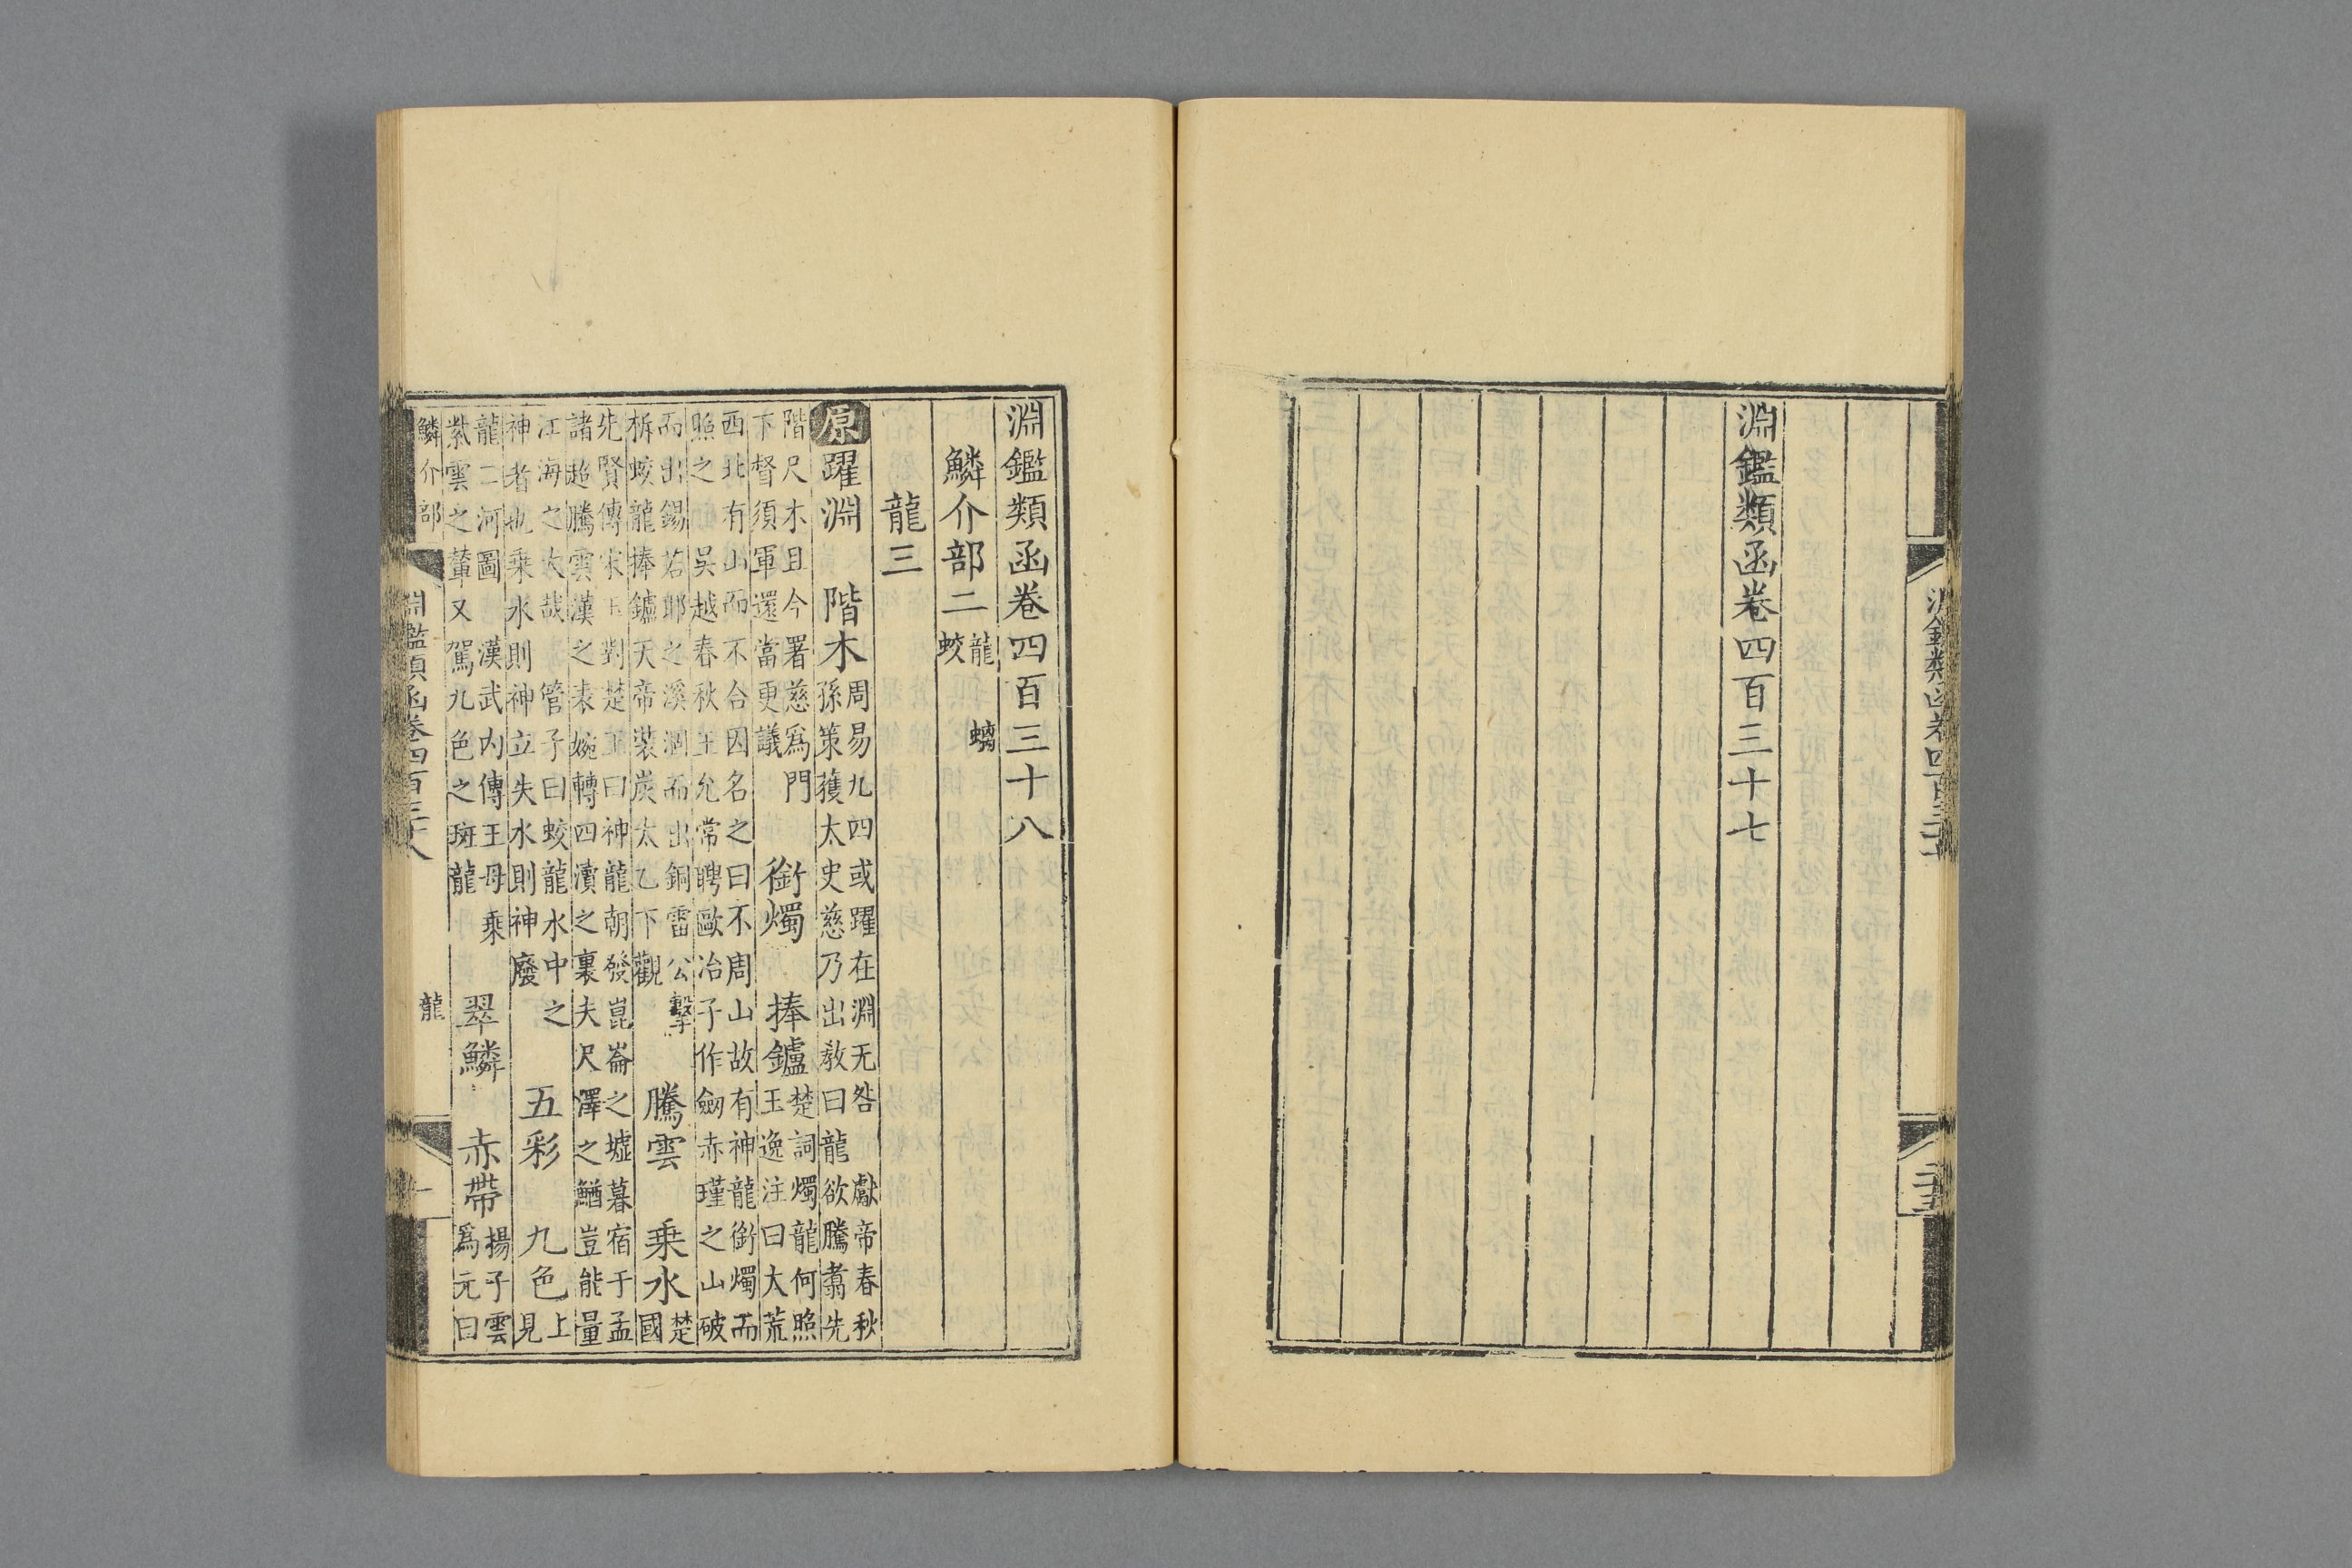 淵鑑類函卷四百三十七
二十五
淵鑑類函卷四百三十七
淵鑑類函卷四百三十八
鱗介部二 龍 螭
蛟
龍三
原躍淵 階木 周易九四或躍在淵无咎 獻帝春秋
孫策獲太史慈乃出教曰龍欲騰翥先
階尺木且今署慈爲門
下督須軍還當更議
銜燭 捧鑪 楚詞燭龍何照
王逸注曰大荒
西北有山而不合因名之曰不周山故有神龍銜燭而
照之 吳越春秋王允常聘歐冶子作劔赤瑾之山破
而出錫若耶之溪涸而出銅雷公擊
柝蛟龍捧鑪天帝裝炭太乙下觀
騰雲 乗水 楚
國
先賢傳宋玉對楚王曰神龍朝發崑崙之墟暮宿于孟
諸超騰雲漢之表婉轉四瀆之裏夫尺澤之鰌豈能量
江海之大哉 管子曰蛟龍水中之
神者也乗水則神立失水則神廢
五彩 九色 上
見
龍二河圖 漢武內傳王母乗
紫雲之輦又駕九色之斑龍
翠鱗 赤帶 揚子雲
爲元曰
鱗介部 龍
淵鑑類函卷四百三十八
一